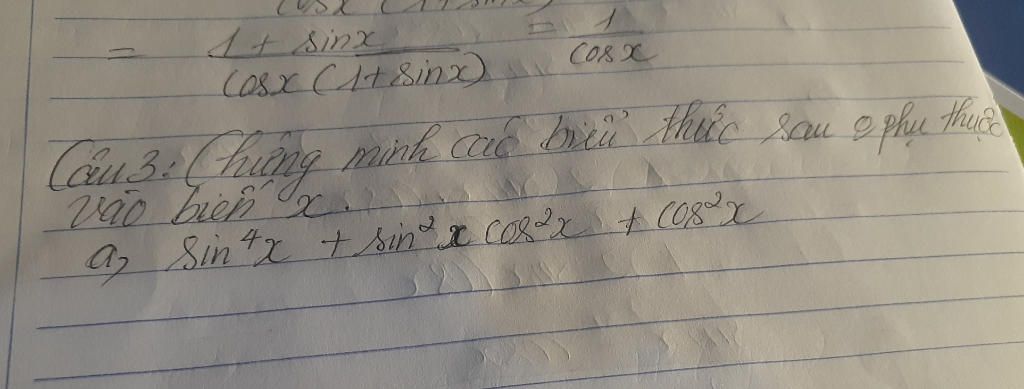 cosx (1 + sinx)
= \frac{1 + sinx}{cosx (1 + sinx)} = \frac{1}{cosx}
Câu 3: Chứng minh các biểu thức sau phụ thuộc
vào biến x.
a, sin⁴x + sin²x cos²x + cos²x